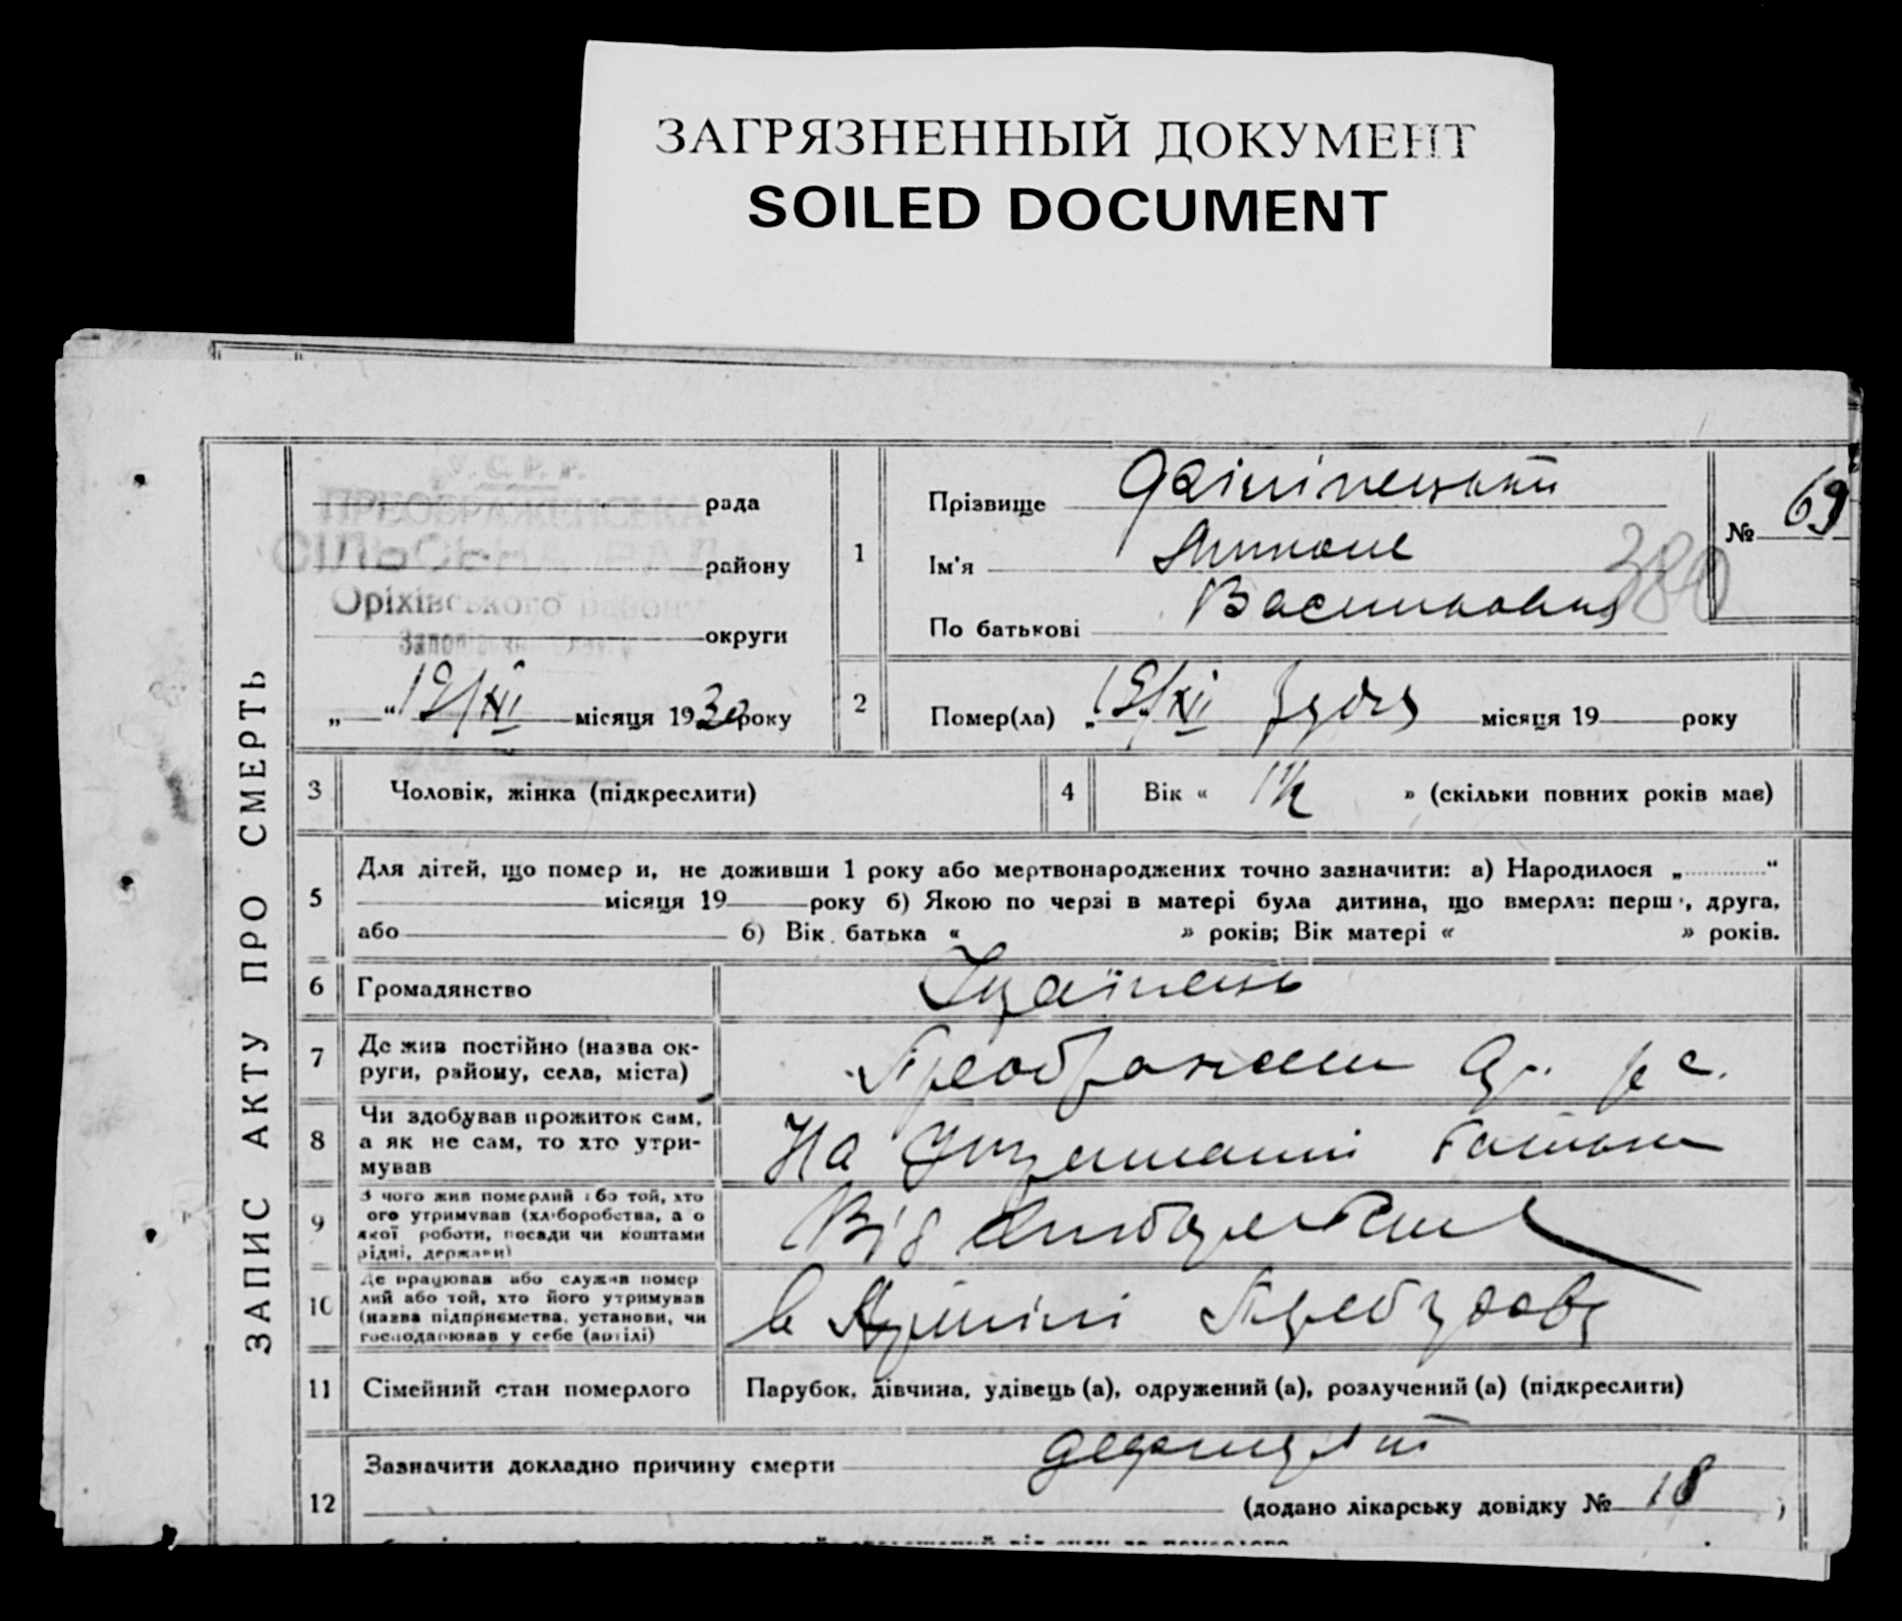 ЗАГРЯЗНЕННЫЙ ДОКУМЕНТ
SOILED DOCUMENT
ЗАПИС АКТУ ПРО СМЕРТЬ
У. С. Р. Р.
ПРЕОБРАЖЕНСЬКА
рада
СІЛЬСЬКА РАДА
району
Оріхівського району
округи
„ “ 12/XII місяця 1932 року
1
Прізвище
Ім'я
По батькові Васильович
№ 69
380
2
Помер(ла) „ місяця 19 року
3 Чоловік, жінка (підкреслити)
4 Вік « 1½ » (скільки повних років має)
5
Для дітей, що помер и, не доживши 1 року або мертвонароджених точно зазначити: а) Народилося „ “
місяця 19 року б) Якою по черзі в матері була дитина, що вмерла: перш , друга,
або б) Вік батька « » років; Вік матері « » років.
6 Громадянство Українець
7
Де жив постійно (назва ок-
руги, району, села, міста)
Преображенка Ор. р с.
8
Чи здобував прожиток сам,
а як не сам, то хто утри-
мував
На утриманні батька
9
З чого жив померлий або той, хто
ого утримував (хліборобства, а о
якої роботи, посади чи коштами
рідні, держави)
Від хлібороб
10
Де працював або служив помер
лий або той, хто його утримував
(назва підприємства, установи, чи
господарював у себе (артілі)
в Артілі
11 Сімейний стан померлого Парубок, дівчина, удівець (а), одружений (а), розлучений (а) (підкреслити)
12
Зазначити докладно причину смерти
(додано лікарську довідку № 18 )